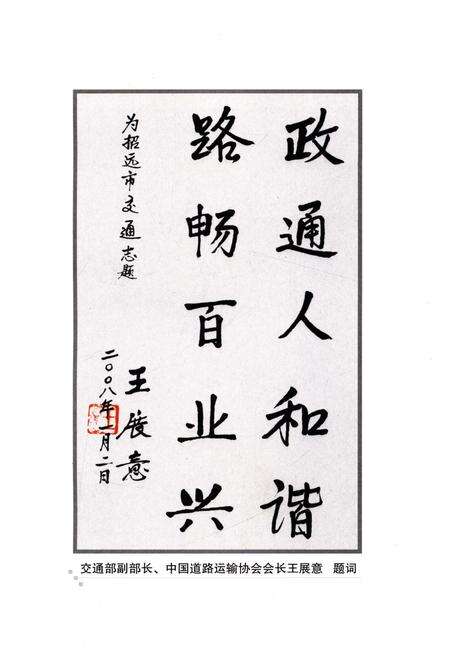 政通人和谐
路畅百业兴
为招远市交通志题
王展意
二〇〇八年一月二日
交通部副部长、中国道路运输协会会长王展意 题词